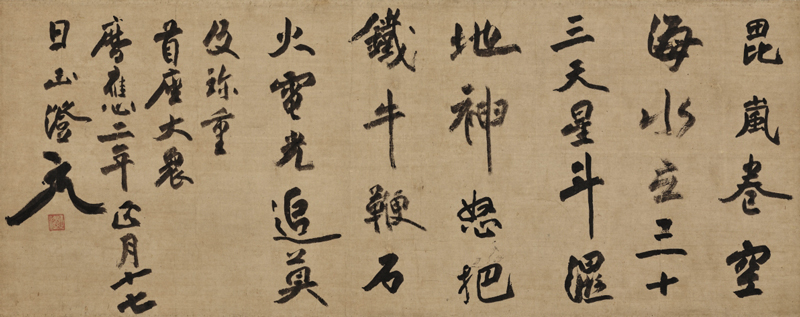 毘嵐巻空
海水立三十
三天星斗濕
地神怒把
鐵牛鞭石
火電光追莫
及珎重
首座大衆
暦應二年正月十七
日玉澄